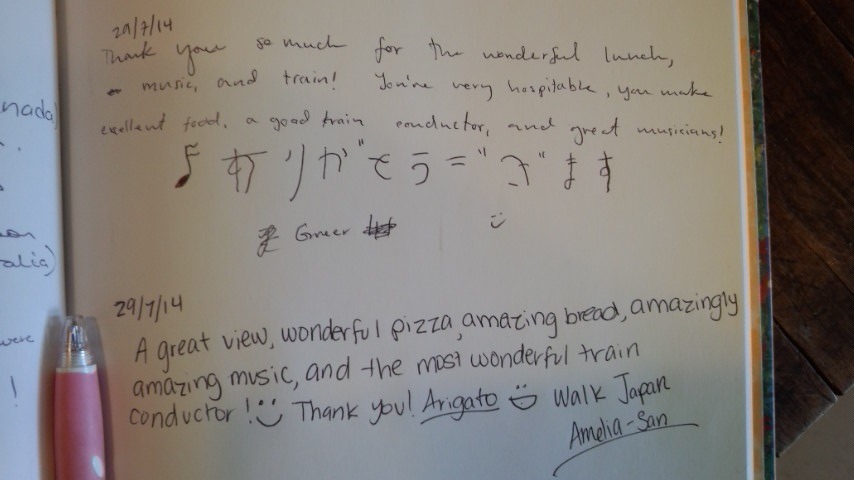 nada)
alia)
were
!
29/7/14
Thank you so much for the wonderful lunch,
music, and train! You're very hospitable, you make
excellent food, a good train conductor, and great musicians!
ありがとうございます
Greer
29/7/14
A great view, wonderful pizza, amazing bread, amazingly
amazing music, and the most wonderful train
conductor! Thank you! Arigato Walk Japan
Amelia-San